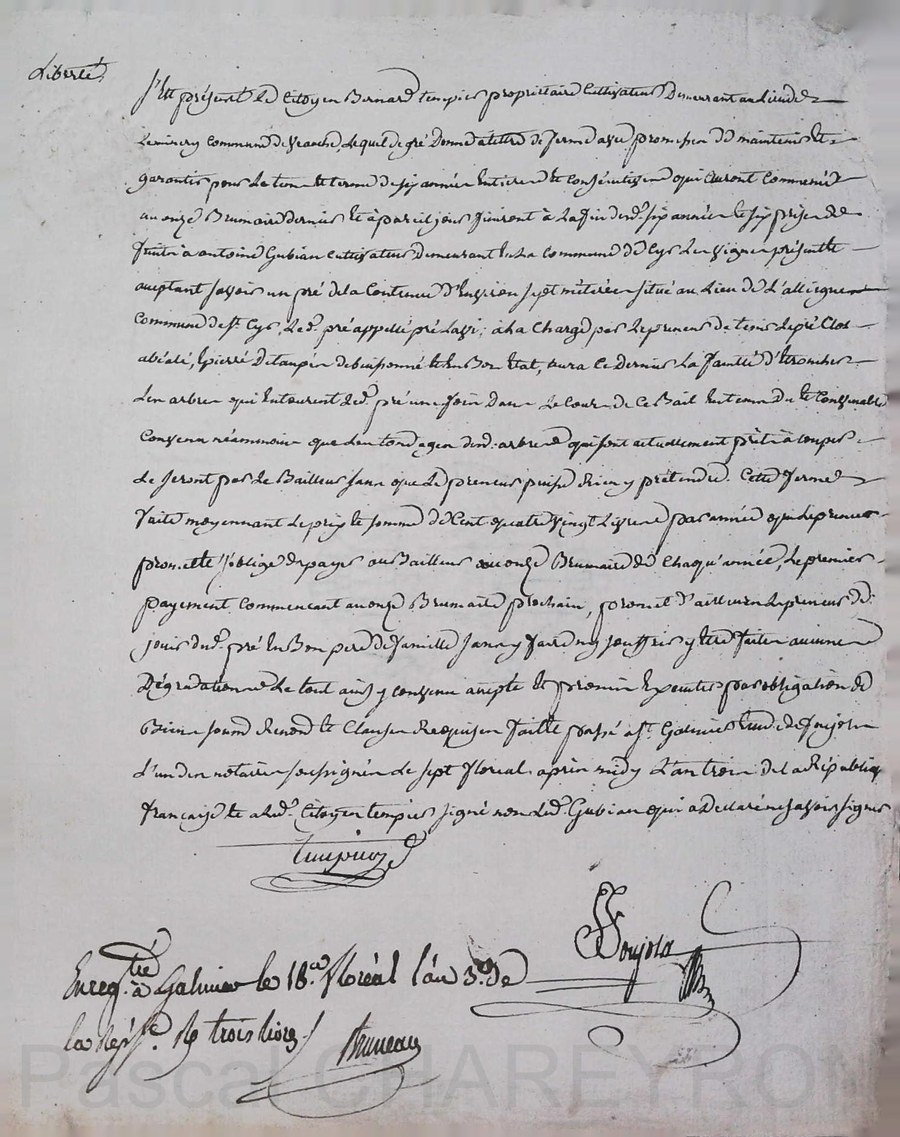 Liberté
S'est présenté le Citoyen Bernard tempier propriétaire Cultivateur Demeurant au Lieu de
commune de veauche, Lequel de gré Donne à tittre de ferme avec promesse de maintenir et
garantir pour Le tems et terme de six années Entieres et Consécutives qui auront Commencé
au onze Brumaire dernier et à pareil jour finiront à La fin desd. six années et six prises de
fruits à antoine Gubian cultivateur demeurant En La commune de Cyr Les vignes présent et
aceptant savoir un pré de la Contenue d'Environ sept méterées situé au Lieu de L'
Commune de St. Cyr, Led. pré appellé pré ; à La Charge par Le preneur de tenir Le pré Clos
, Epierré Détaupé debuissonné et En Bon Etat, aura ce Dernier La faculté d'Etroncher
Les arbres qui Entourent Led. pré une fois Dans Le Cour de Ce Bail En tems Du et Convenable
Convenu néammoins que Les tondages desd. arbres qui sont actuellement prêts à couper
Le seront par Le Bailleur sans que Le preneur puisse Rien y prétendre. Cette ferme
faite moyennant Le prix et somme de Cent quatre vingt Livres par année que Le preneur
promet et s'oblige de payer au Bailleur au onze Brumaire de Chaque année, Le premier
payement Commencant au onze Brumaire prochain, promet d'ailleurs Le preneur de
jouir dud. pré En Bon pere de famille sans y faire ny souffrir y Etre faites aucunes
Dégradations Le tout ainsy convenu acepté et promis Exécuter par obligation de
Biens soumis Renon. et Clauses Requises faitte passé à St. Galmier Etude de Soujola
L'un des notaires soussignés Le sept floréal après midy L'an trois de La République
française et a Led. Citoyen tempier signé non Led. Gubian qui a Déclaré ne savoir signer
tempier
Soujola
Enregtré. à Galmier le 18.e floréal l'an 3.e de
la Rép. R trois livres
Bruneau
Pascal CHAREYRON